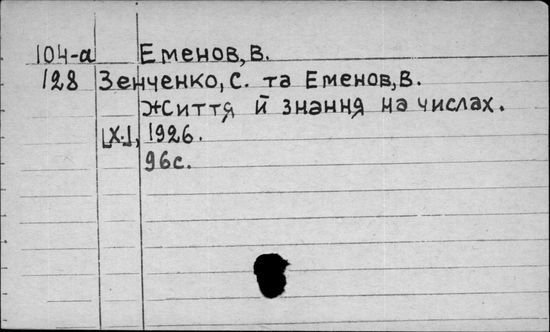 104-а Еменов, В.
128 Зенченко, С. та Еменов, В.
Життя й знання на числах.
[Х.], 1926.
96с.